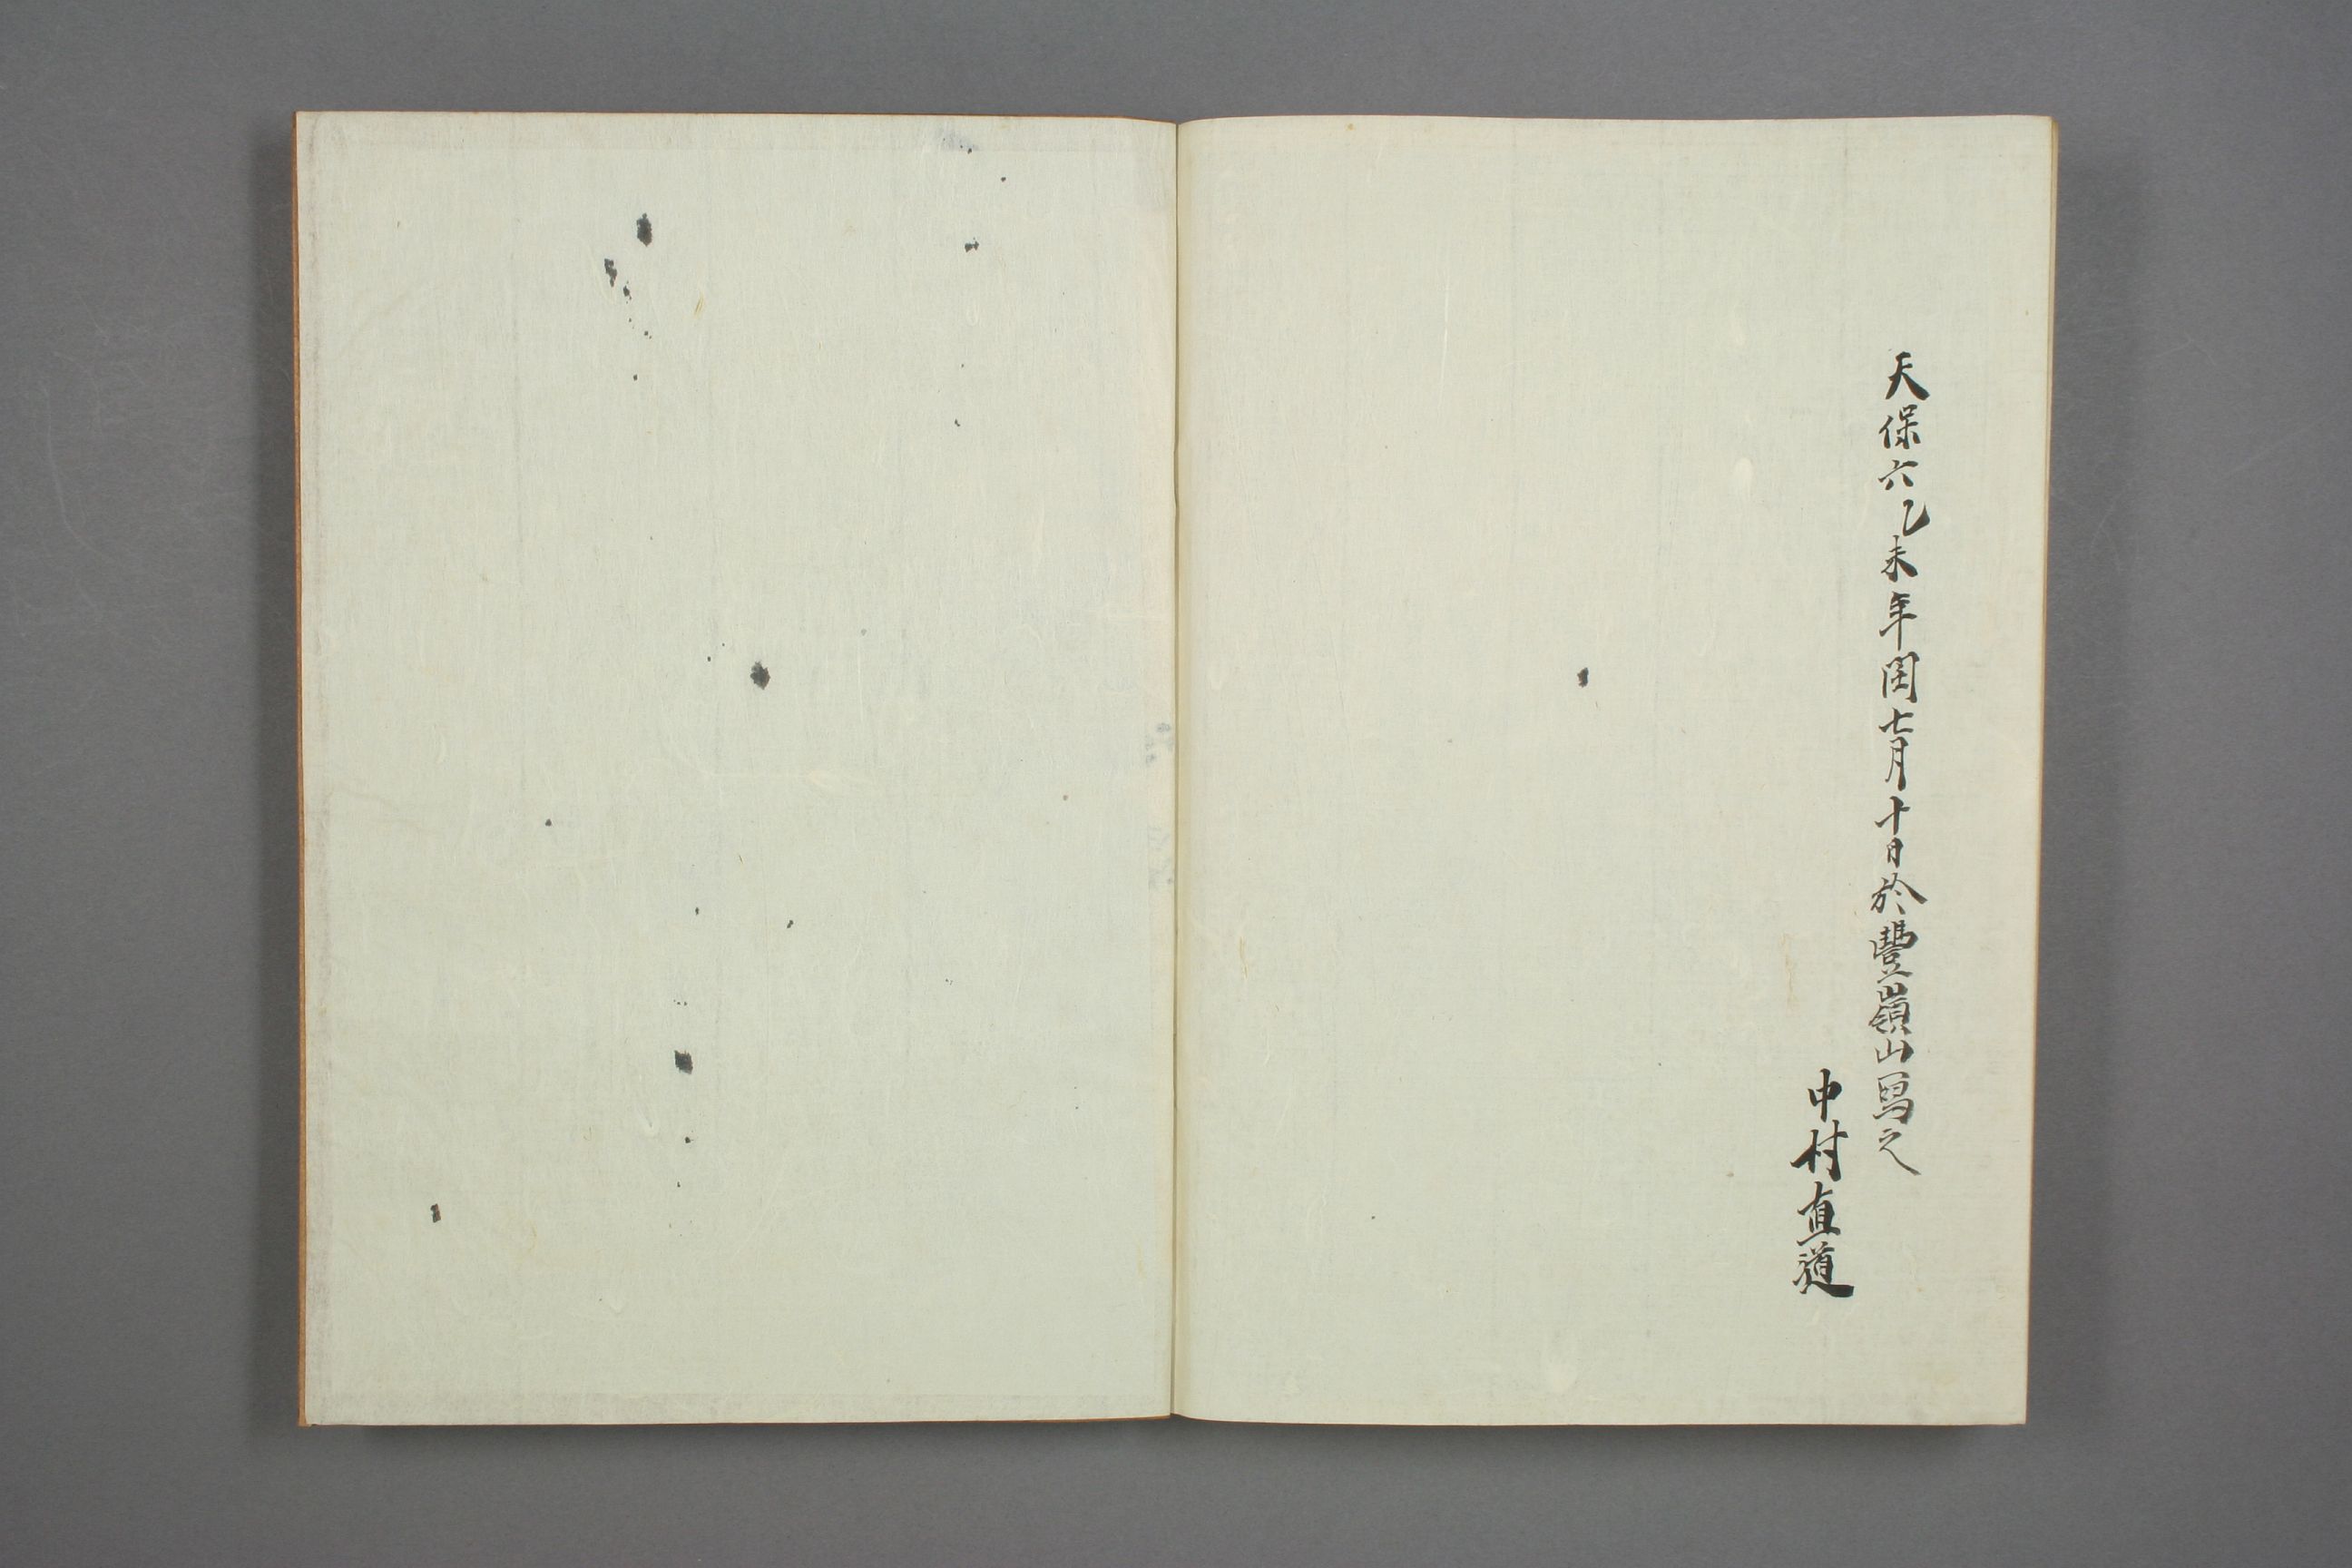 天保六乙未年閏七月十日於豐嶺山寫之
中村直道